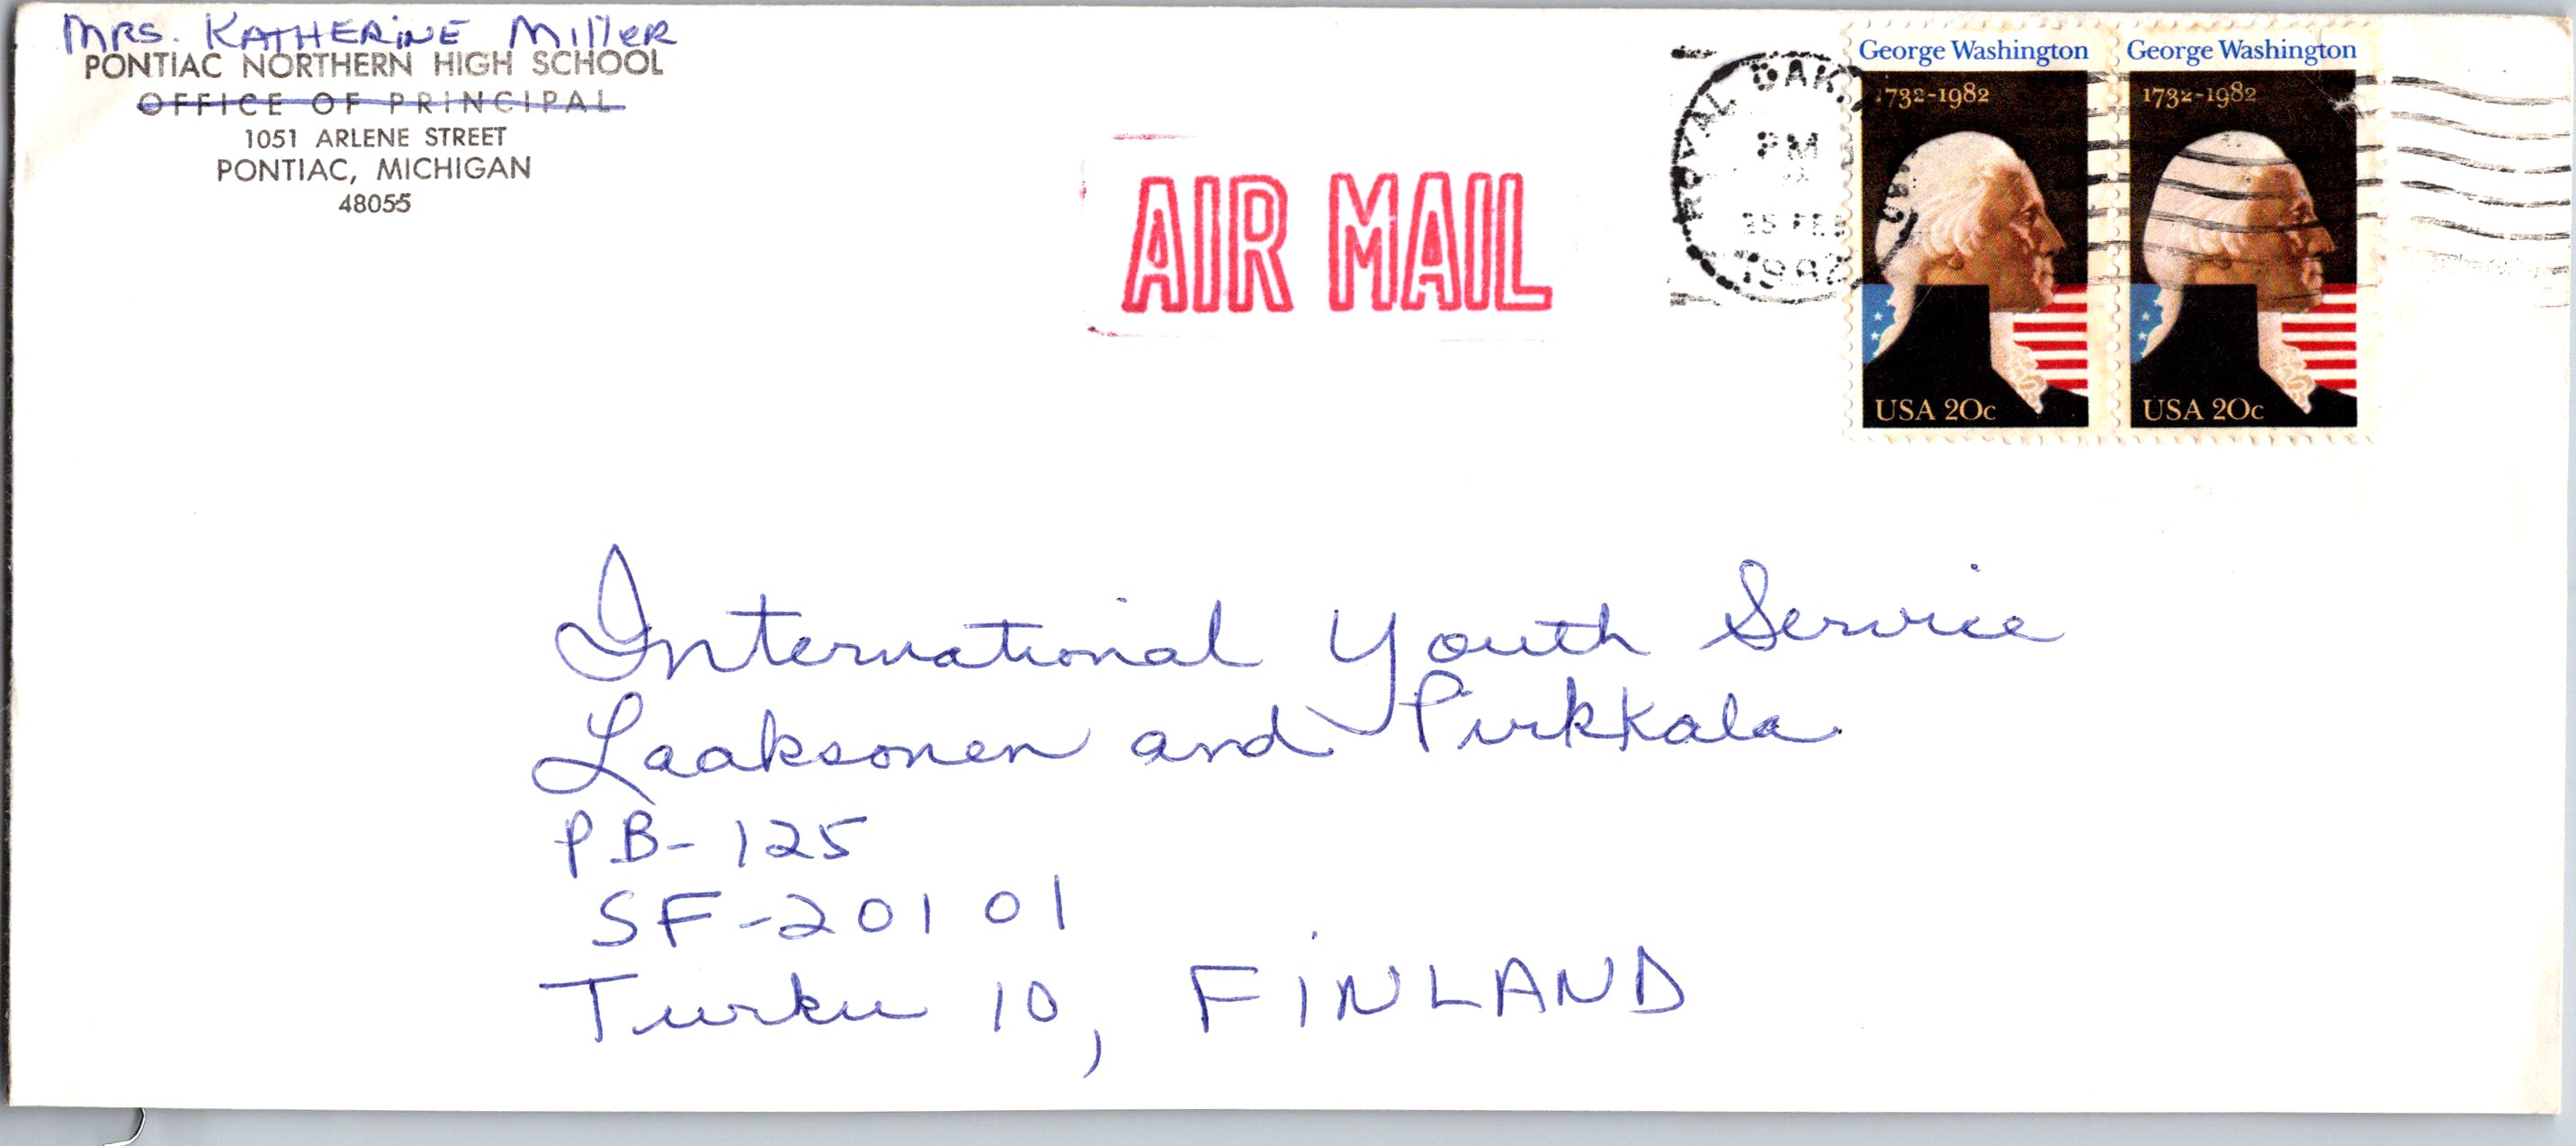 MRS. KATHERINE MILLER
PONTIAC NORTHERN HIGH SCHOOL
OFFICE OF PRINCIPAL
1051 ARLENE STREET
PONTIAC, MICHIGAN
48055
AIR MAIL
ROYAL OAK,
PM
25 FEB
1982
George Washington
1732-1982
USA 20c
George Washington
1732-1982
USA 20c
International Youth Service
Laaksonen and Pirkkala
PB-125
SF-20101
Turku 10, FINLAND